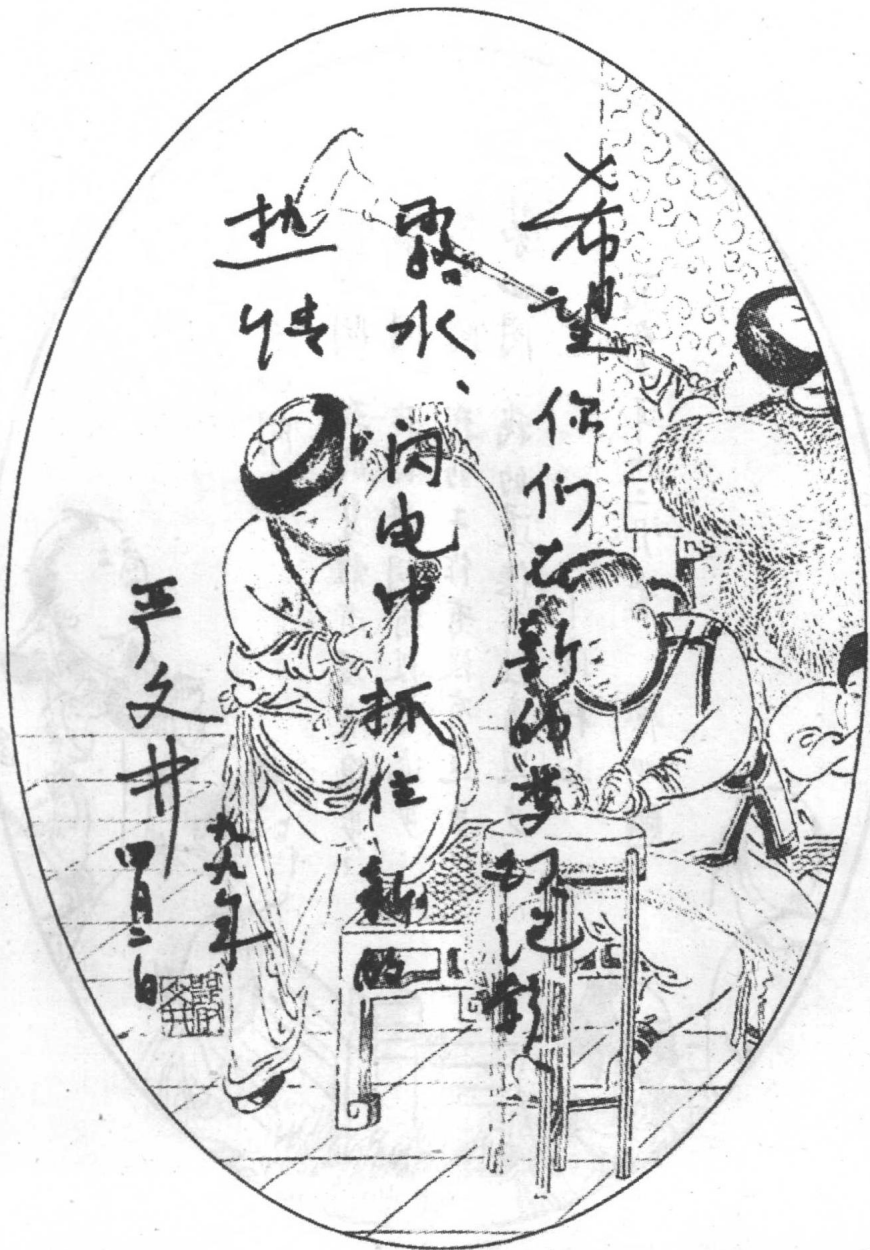 希望你们在新的梦幻色彩、
露水、闪电中抓住新的
热情
严文井
九九年
四月二日